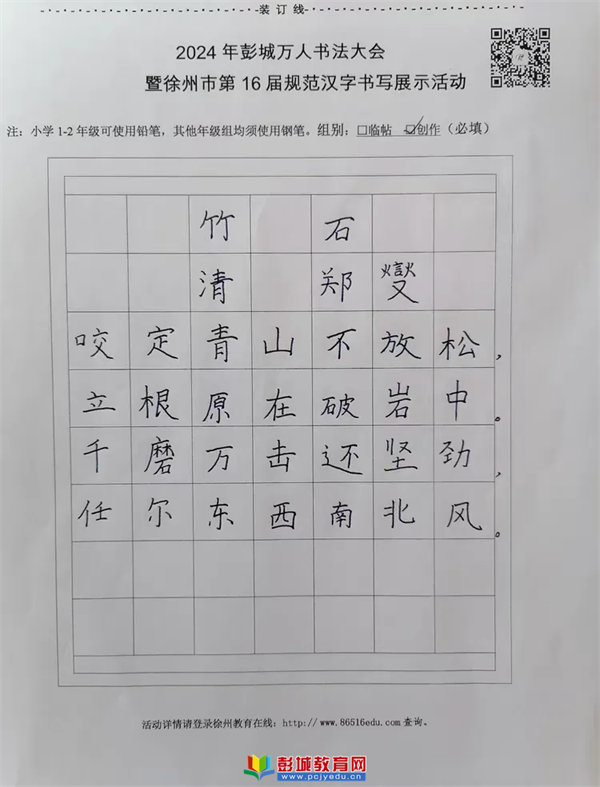 装 订 线
2024 年彭城万人书法大会
暨徐州市第 16 届规范汉字书写展示活动
注：小学 1-2 年级可使用铅笔，其他年级组均须使用钢笔。组别：□临帖 ☑创作（必填）
竹 石
清 郑 燮
咬 定 青 山 不 放 松 ，
立 根 原 在 破 岩 中 。
千 磨 万 击 还 坚 劲 ，
任 尔 东 西 南 北 风 。
活动详情请登录徐州教育在线：http://www.86516edu.com 查询。
彭城教育网
www.pcjyedu.cn